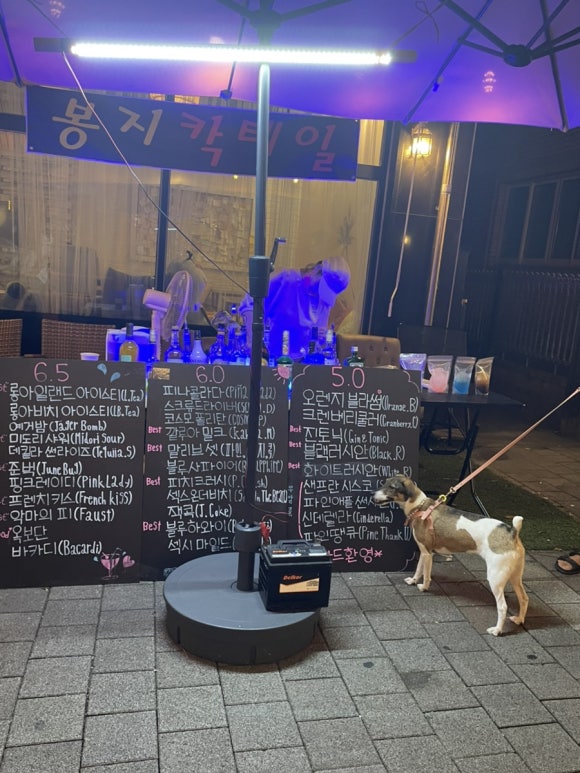 봉지칵테일
6.5
롱아일랜드 아이스티(L.Tea)
롱비치 아이스티(LB.Tea)
예거밤 (Jager Bomb)
미도리 샤워 (Midori Sour)
데킬라 썬라이즈(Tequila.S)
준벅 (June Bug)
핑크레이디 (Pink Lady)
프렌치키스 (French kiss)
악마의 피 (Faust)
욱보단
바카디(Bacardi)
6.0
피나콜라다
스크루드라이버
코스모폴리탄
Best 깔루아 밀크
Best 말리부 셋
블루사파이어
Best 피치크러쉬
섹스온더비치
잭콕 (J.Coke)
Best 블루하와이
섹시 마일드
5.0
오렌지 블라썸 (Orange.B)
크랜베리쿨러 (Cranberry.
Best 진토닉 (Gin & Tonic)
Best 블랙러시안 (Black.R)
화이트러시안 (White.R)
샌프란시스코
파인애플
신데렐라 (Cinderella)
파인땡큐 (Pine Thank
드환영
DelKor